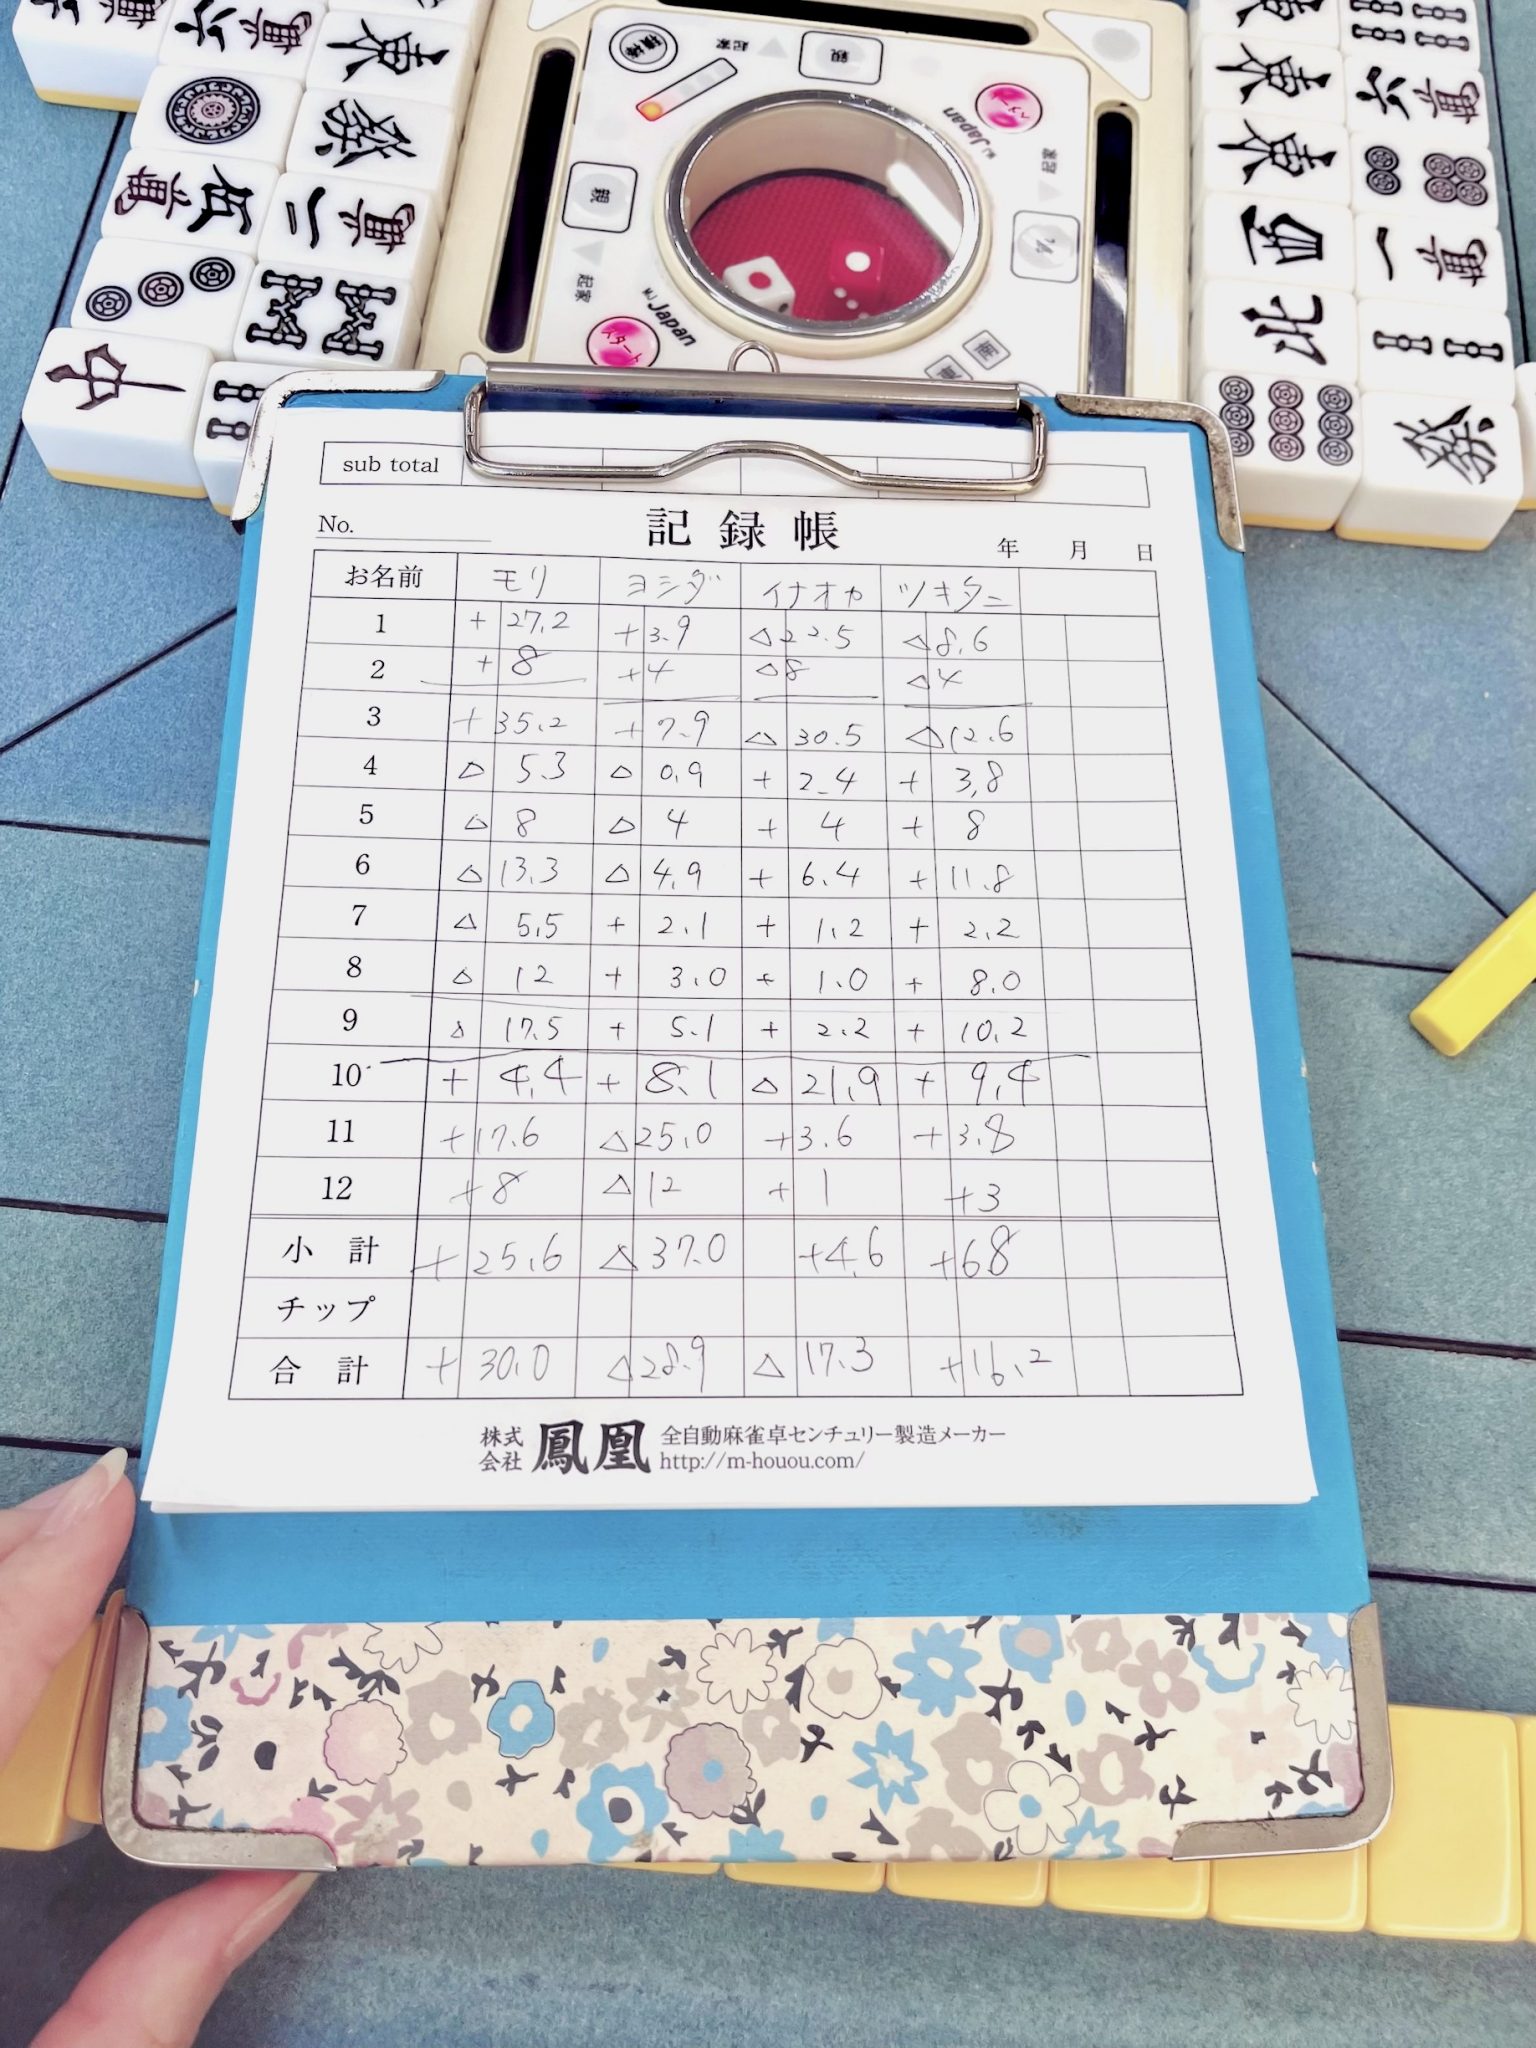 sub total
No.
記録帳
年 月 日
お名前 モリ ヨシダ イナオカ ツキタニ
1 + 27.2 + 3.9 △ 22.5 △ 8.6
2 + 8 + 4 △ 8 △ 4
3 + 35.2 + 7.9 △ 30.5 △ 12.6
4 △ 5.3 △ 0.9 + 2.4 + 3.8
5 △ 8 △ 4 + 4 + 8
6 △ 13.3 △ 4.9 + 6.4 + 11.8
7 △ 5.5 + 2.1 + 1.2 + 2.2
8 △ 12 + 3.0 + 1.0 + 8.0
9 △ 17.5 + 5.1 + 2.2 + 10.2
10 + 4.4 + 8.1 △ 21.9 + 9.4
11 + 17.6 △ 25.0 + 3.6 + 3.8
12 + 8 △ 12 + 1 + 3
小計 + 25.6 △ 37.0 + 4.6 + 68
チップ
合計 + 30.0 △ 28.9 △ 17.3 + 16.2
株式会社 鳳凰 全自動麻雀卓センチュリー製造メーカー
http://m-houou.com/
親
起家
MJ Japan
スタート
親
起家
MJ Japan
南
東
發
萬
伍萬
二萬
中
東
六萬
東
西
一萬
北
發